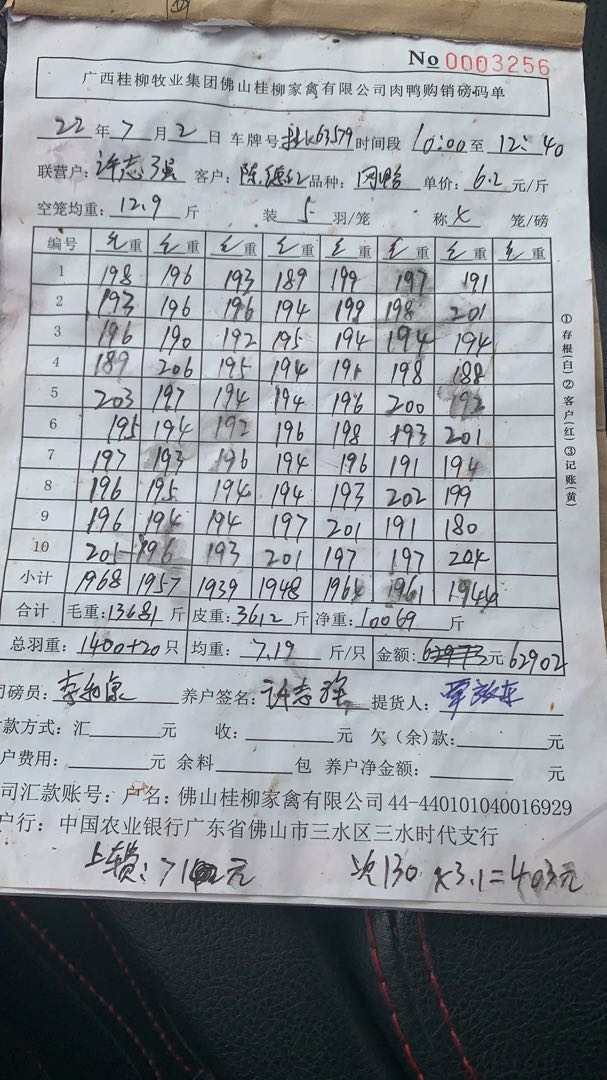 No 0003256
广西桂柳牧业集团佛山桂柳家禽有限公司肉鸭购销磅码单
22 年 7 月 2 日 车牌号 63579 时间段 10:00 至 12:40
联营户: 许志强 客户: 陈德红 品种: 单价: 6.2 元/斤
空笼均重: 12.9 斤 装 5 羽/笼 称 4 笼/磅
编号 毛重 毛重 毛重 毛重 毛重 毛重 毛重 毛重
1 198 196 193 189 199 197 191
2 193 196 196 194 199 198 201
3 196 190 192 195 194 194 194
4 189 206 195 194 191 198 188
5 203 197 194 194 196 200 192
6 195 194 192 196 198 193 201
7 197 193 196 194 196 191 194
8 196 195 194 194 193 202 199
9 196 194 194 197 201 191 180
10 205 196 193 201 197 197 204
小计 1968 1957 1939 1948 1964 1961 1944
合计 毛重: 13681 斤 皮重: 3612 斤 净重: 10069 斤
总羽重: 1400+20 只 均重: 7.19 斤/只 金额: 元 62902
磅员: 养户签名: 许志强 提货人:
款方式: 汇 元 收: 元 欠(余)款: 元
户费用: 元 余料 包 养户净金额: 元
司汇款账号: 户名: 佛山桂柳家禽有限公司 44-440101040016929
户行: 中国农业银行广东省佛山市三水区三水时代支行
上 元 次130 x3.1=403元
①存根(白)②客户(红)③记账(黄)